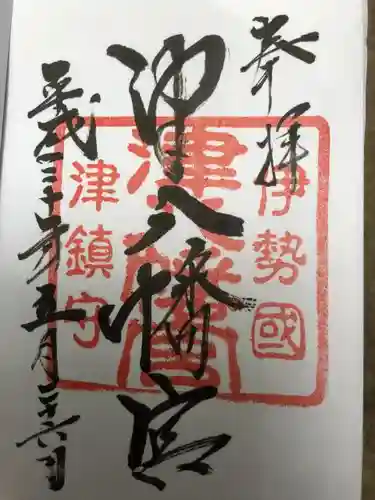 奉拝
伊勢國
津八幡宮
津八幡宮
津鎮守
平成三十年五月二十六日